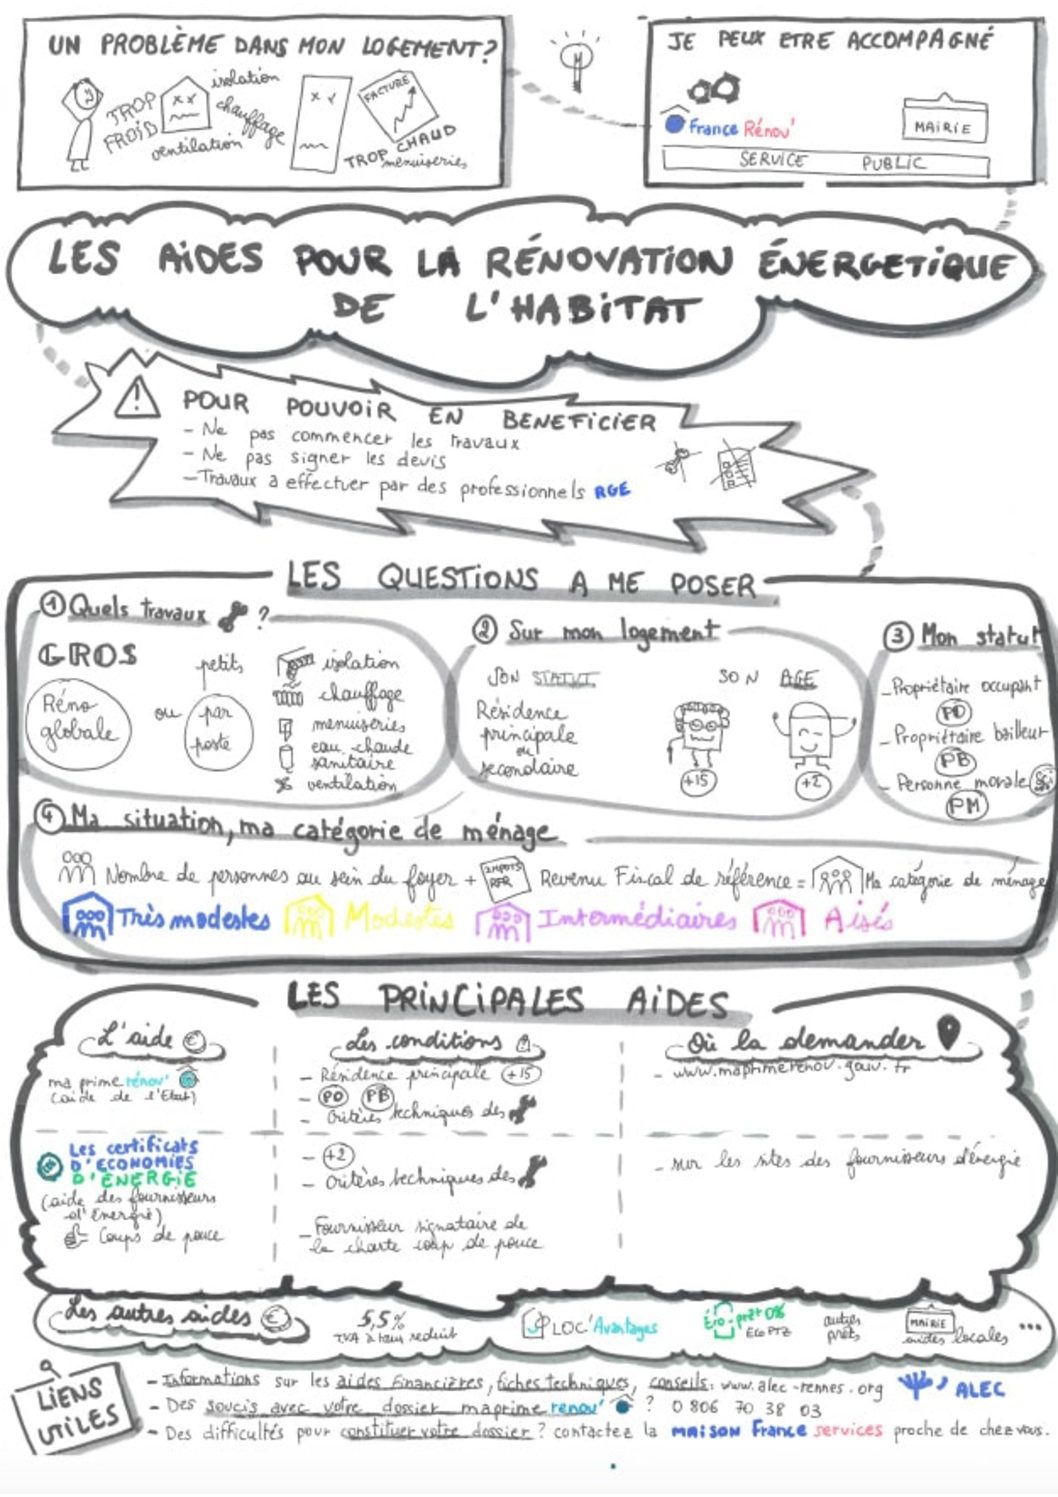 UN PROBLÈME DANS MON LOGEMENT?
TROP FROID
isolation
chauffage
ventilation
FACTURE
TROP CHAUD
menuiseries
JE PEUX ETRE ACCOMPAGNÉ
France Rénov'
MAIRIE
SERVICE PUBLIC
LES AIDES POUR LA RÉNOVATION ÉNERGETIQUE
DE L'HABITAT
POUR POUVOIR EN BENEFICIER
- Ne pas commencer les travaux
- Ne pas signer les devis
- Travaux a effectuer par des professionnels RGE
LES QUESTIONS A ME POSER
1 Quels travaux ?
GROS
Réno globale
ou
petits
par poste
isolation
chauffage
menuiseries
eau chaude
sanitaire
ventilation
2 Sur mon logement
SON STATUT
Résidence
principale
ou
secondaire
SON AGE
+15
+2
3 Mon statut
- Propriétaire occupant
PO
- Propriétaire bailleur
PB
- Personne morale
PM
4 Ma situation, ma catégorie de ménage
Nombre de personnes au sein du foyer + IMPOTS RFR Revenu Fiscal de référence = Ma catégorie de ménage
Très modestes Modestes Intermédiaires Aisés
LES PRINCIPALES AIDES
L'aide €
Les conditions
Où la demander
ma prime rénov'
(aide de l'Etat)
- Résidence principale +15
- PO PB
- Critères techniques des
- www.maprimerenov.gouv.fr
Les certificats
D'ECONOMIES
D'ENERGIE
(aide des fournisseurs
d'Energie)
Coups de pouce
- +2
- Critères techniques des
- Fournisseur signataire de
la charte coup de pouce
- sur les sites des fournisseurs d'énergie
Les autres aides €
5,5%
TVA à taux reduit
LOC'Avantages
Éco-prêt 0%
Eco PTZ
autres
prêts
MAIRIE
aides locales ...
LIENS
UTILES
- Informations sur les aides financières, fiches techniques, conseils: www.alec-rennes.org ALEC
- Des soucis avec votre dossier maprime renov' ? 0 806 70 38 03
- Des difficultés pour constituer votre dossier ? contactez la MAISON France services proche de chez vous.